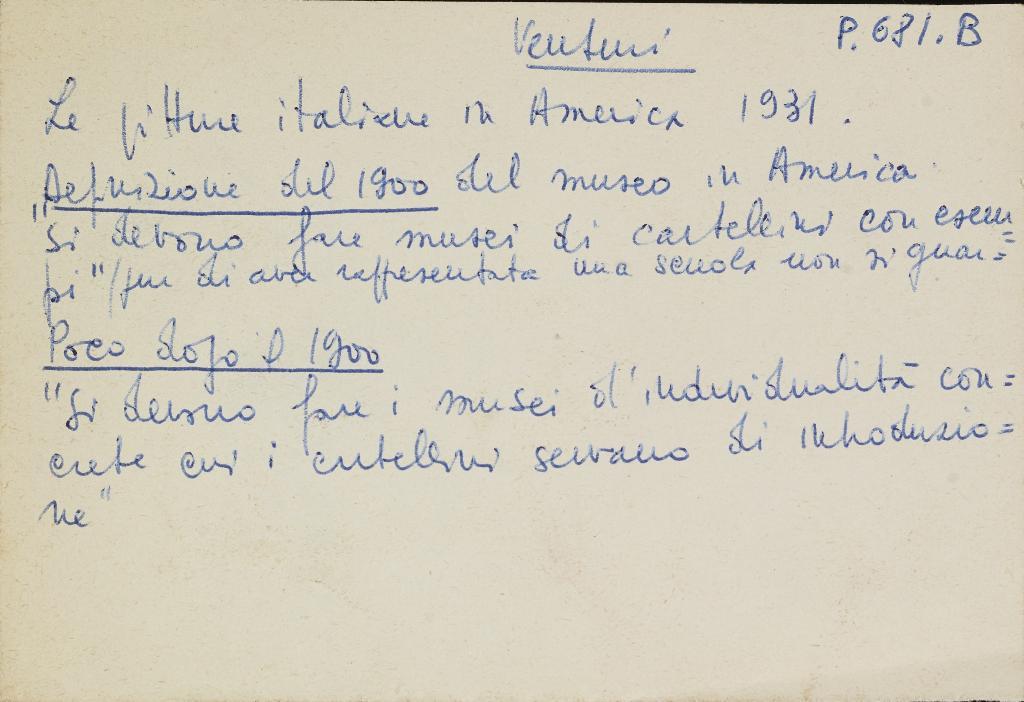 Venturi P.681.B
Le pitture italiane in America 1931.
Definizione del 1900 del museo in America.
"Si devono fare musei di cartellini con esem=
pi" / pur di aver rappresentata una scuola non si guar=
Poco dopo il 1900
"Si devono fare i musei d'individualità con=
crete cui i cartellini servano di introduzio=
ne"